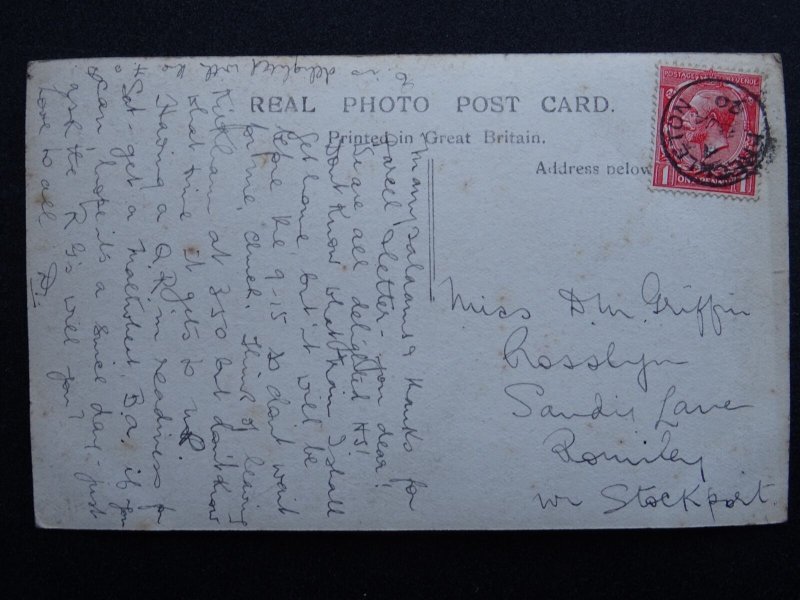 REAL PHOTO POST CARD.
Printed in Great Britain.
Address below
POSTAGE REVENUE
ONE PENNY
1 1
FRECKLETON
Miss D.M. Griffin
Rosslyn
Sandy Lane
Romiley
nr Stockport.
Many salaams & thanks for
parcel & letter - you dear!
We are all delighted
Don't know what train I shall
get home but it will be
before the 9-15 so don't wait
for me, chuck. Think of leaving
Kirkham at 3.50 but don't know
what time it gets to
Having a in readiness for
Sat - get a if you
can, hope it's a day - just
ask the R G's will you?
Love to all D.
is delighted with